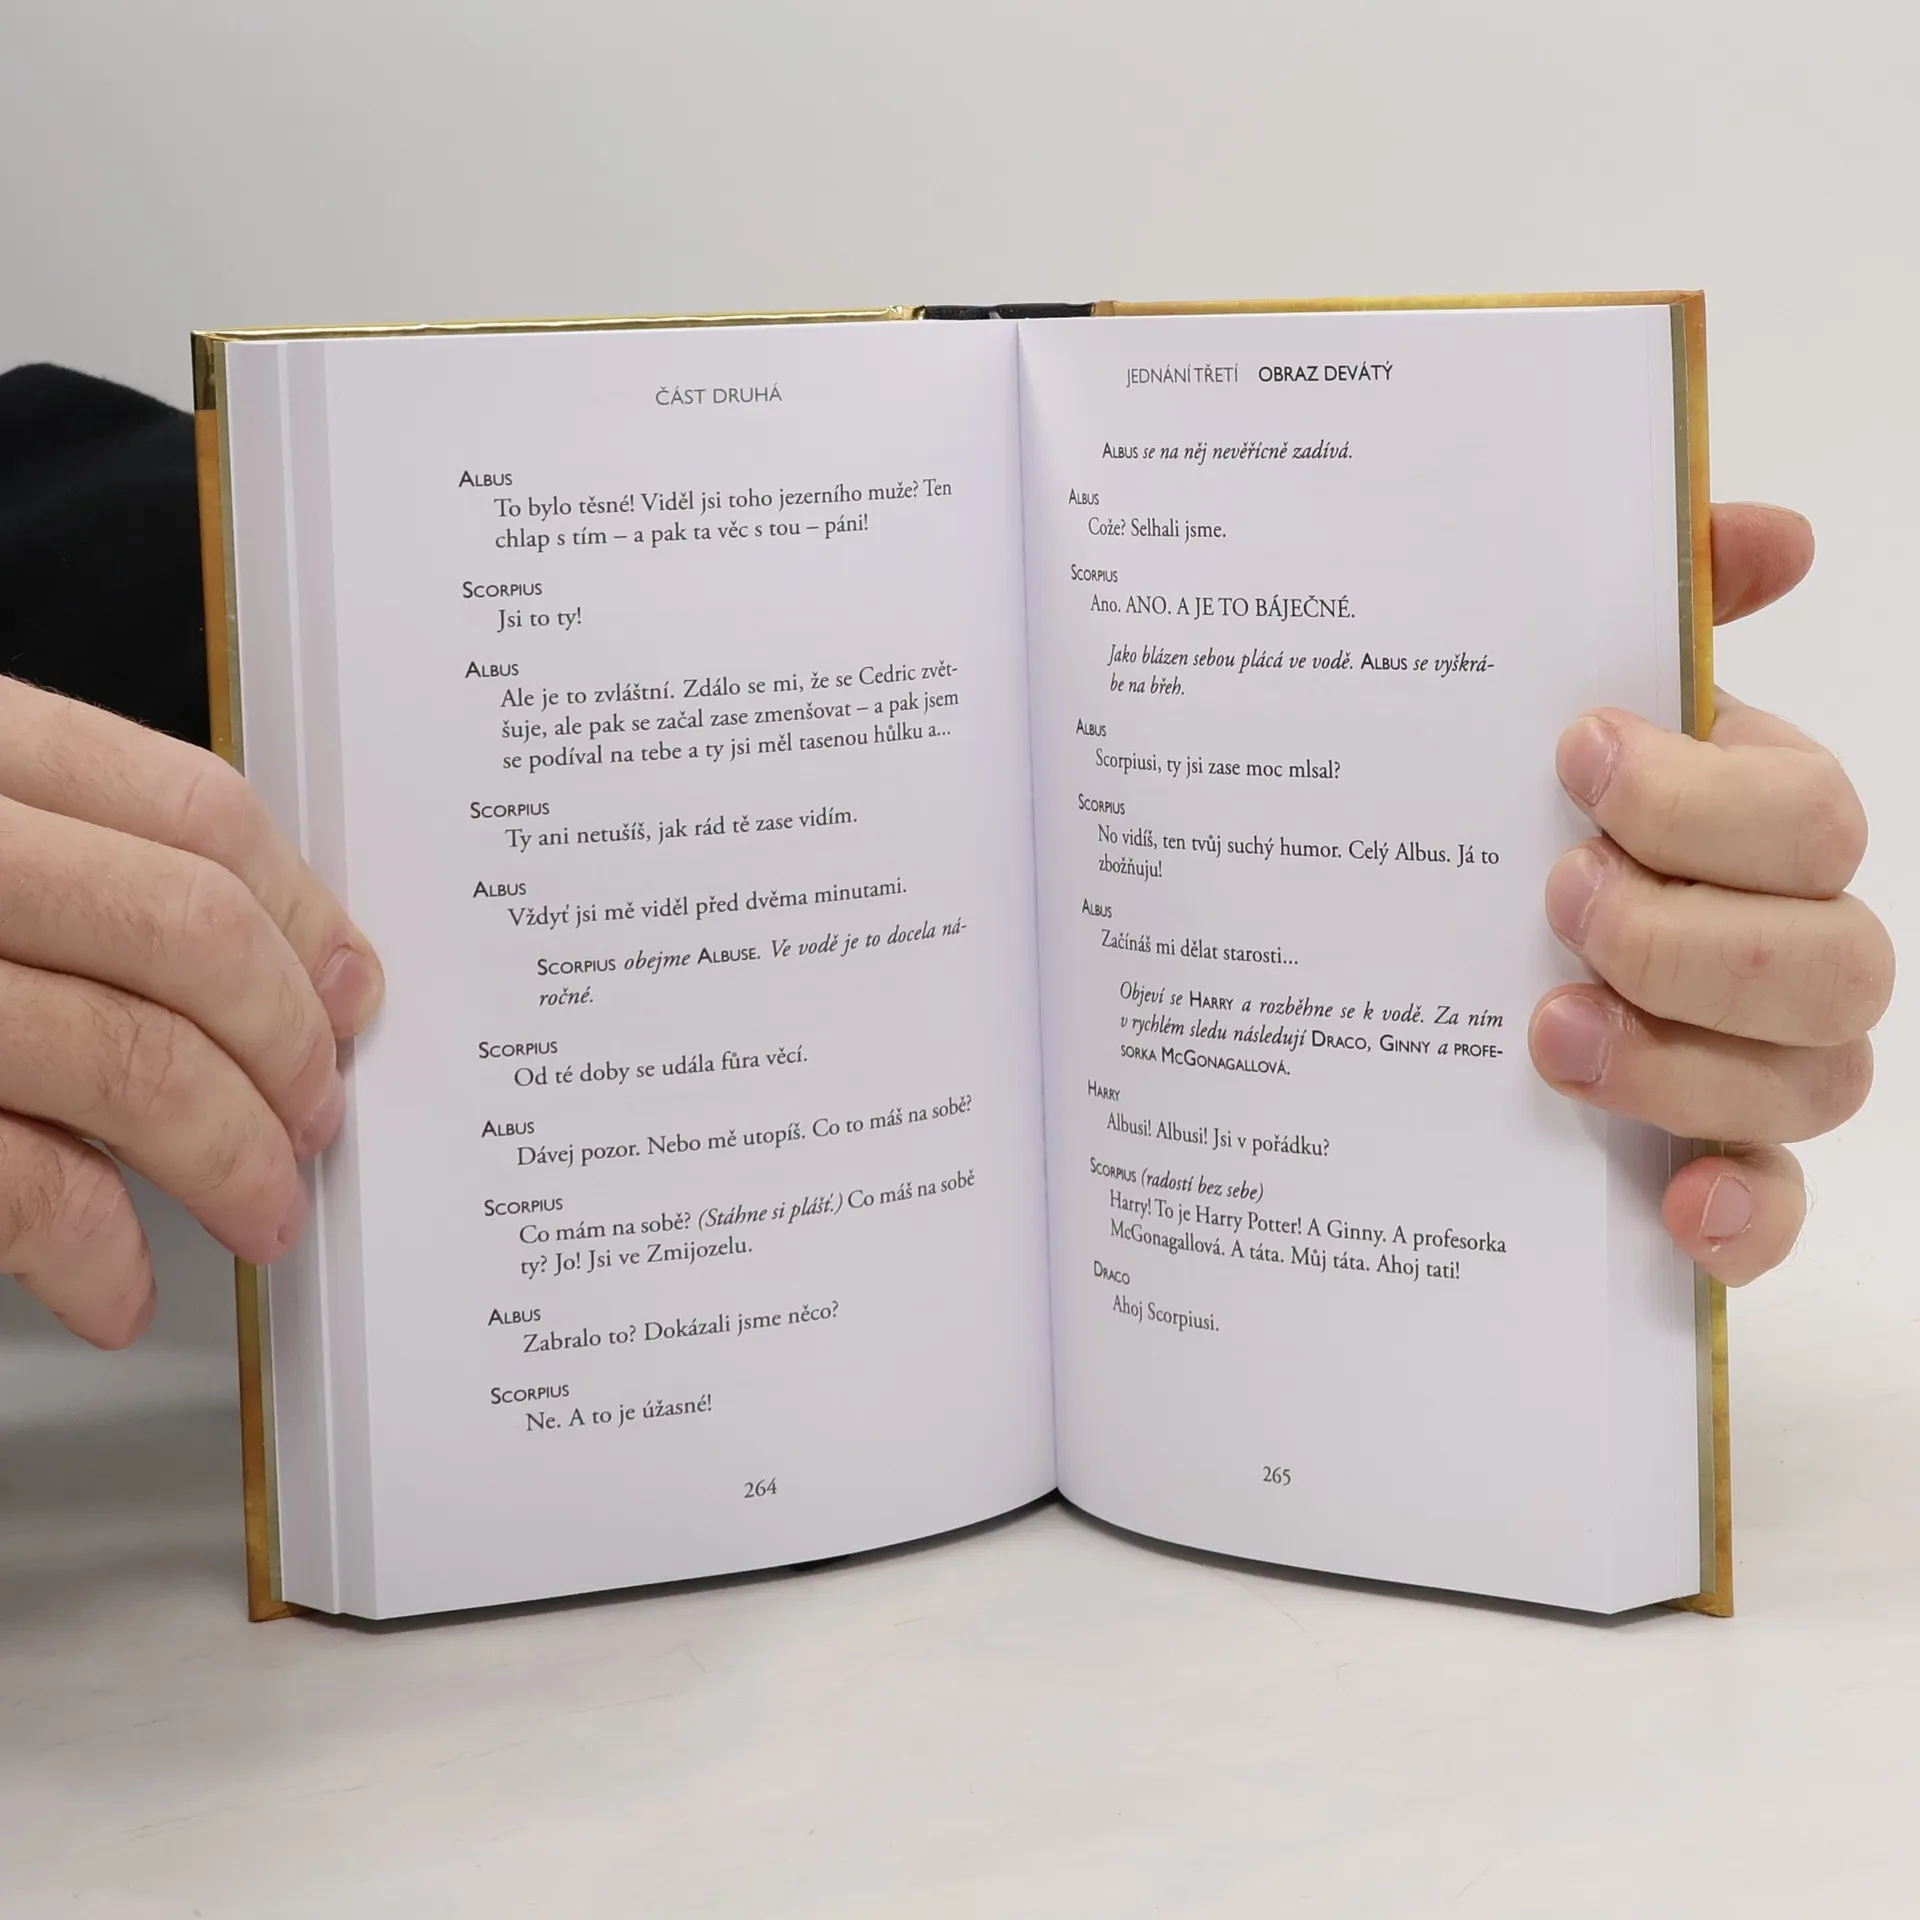 ČÁST DRUHÁ
ALBUS
To bylo těsné! Viděl jsi toho jezerního muže? Ten
chlap s tím – a pak ta věc s tou – páni!
SCORPIUS
Jsi to ty!
ALBUS
Ale je to zvláštní. Zdálo se mi, že se Cedric zvět-
šuje, ale pak se začal zase zmenšovat – a pak jsem
se podíval na tebe a ty jsi měl tasenou hůlku a...
SCORPIUS
Ty ani netušíš, jak rád tě zase vidím.
ALBUS
Vždyť jsi mě viděl před dvěma minutami.
SCORPIUS obejme ALBUSE. Ve vodě je to docela ná-
ročné.
SCORPIUS
Od té doby se udála fůra věcí.
ALBUS
Dávej pozor. Nebo mě utopíš. Co to máš na sobě?
SCORPIUS
Co mám na sobě? (Stáhne si plášť.) Co máš na sobě
ty? Jo! Jsi ve Zmijozelu.
ALBUS
Zabralo to? Dokázali jsme něco?
SCORPIUS
Ne. A to je úžasné!
264
JEDNÁNÍ TŘETÍ OBRAZ DEVÁTÝ
ALBUS se na něj nevěřícně zadívá.
ALBUS
Cože? Selhali jsme.
SCORPIUS
Ano. ANO. A JE TO BÁJEČNÉ.
Jako blázen sebou plácá ve vodě. ALBUS se vyškrá-
be na břeh.
ALBUS
Scorpiusi, ty jsi zase moc mlsal?
SCORPIUS
No vidíš, ten tvůj suchý humor. Celý Albus. Já to
zbožňuju!
ALBUS
Začínáš mi dělat starosti...
Objeví se HARRY a rozběhne se k vodě. Za ním
v rychlém sledu následují DRACO, GINNY a PROFE-
SORKA MCGONAGALLOVÁ.
HARRY
Albusi! Albusi! Jsi v pořádku?
SCORPIUS (radostí bez sebe)
Harry! To je Harry Potter! A Ginny. A profesorka
McGonagallová. A táta. Můj táta. Ahoj tati!
DRACO
Ahoj Scorpiusi.
265